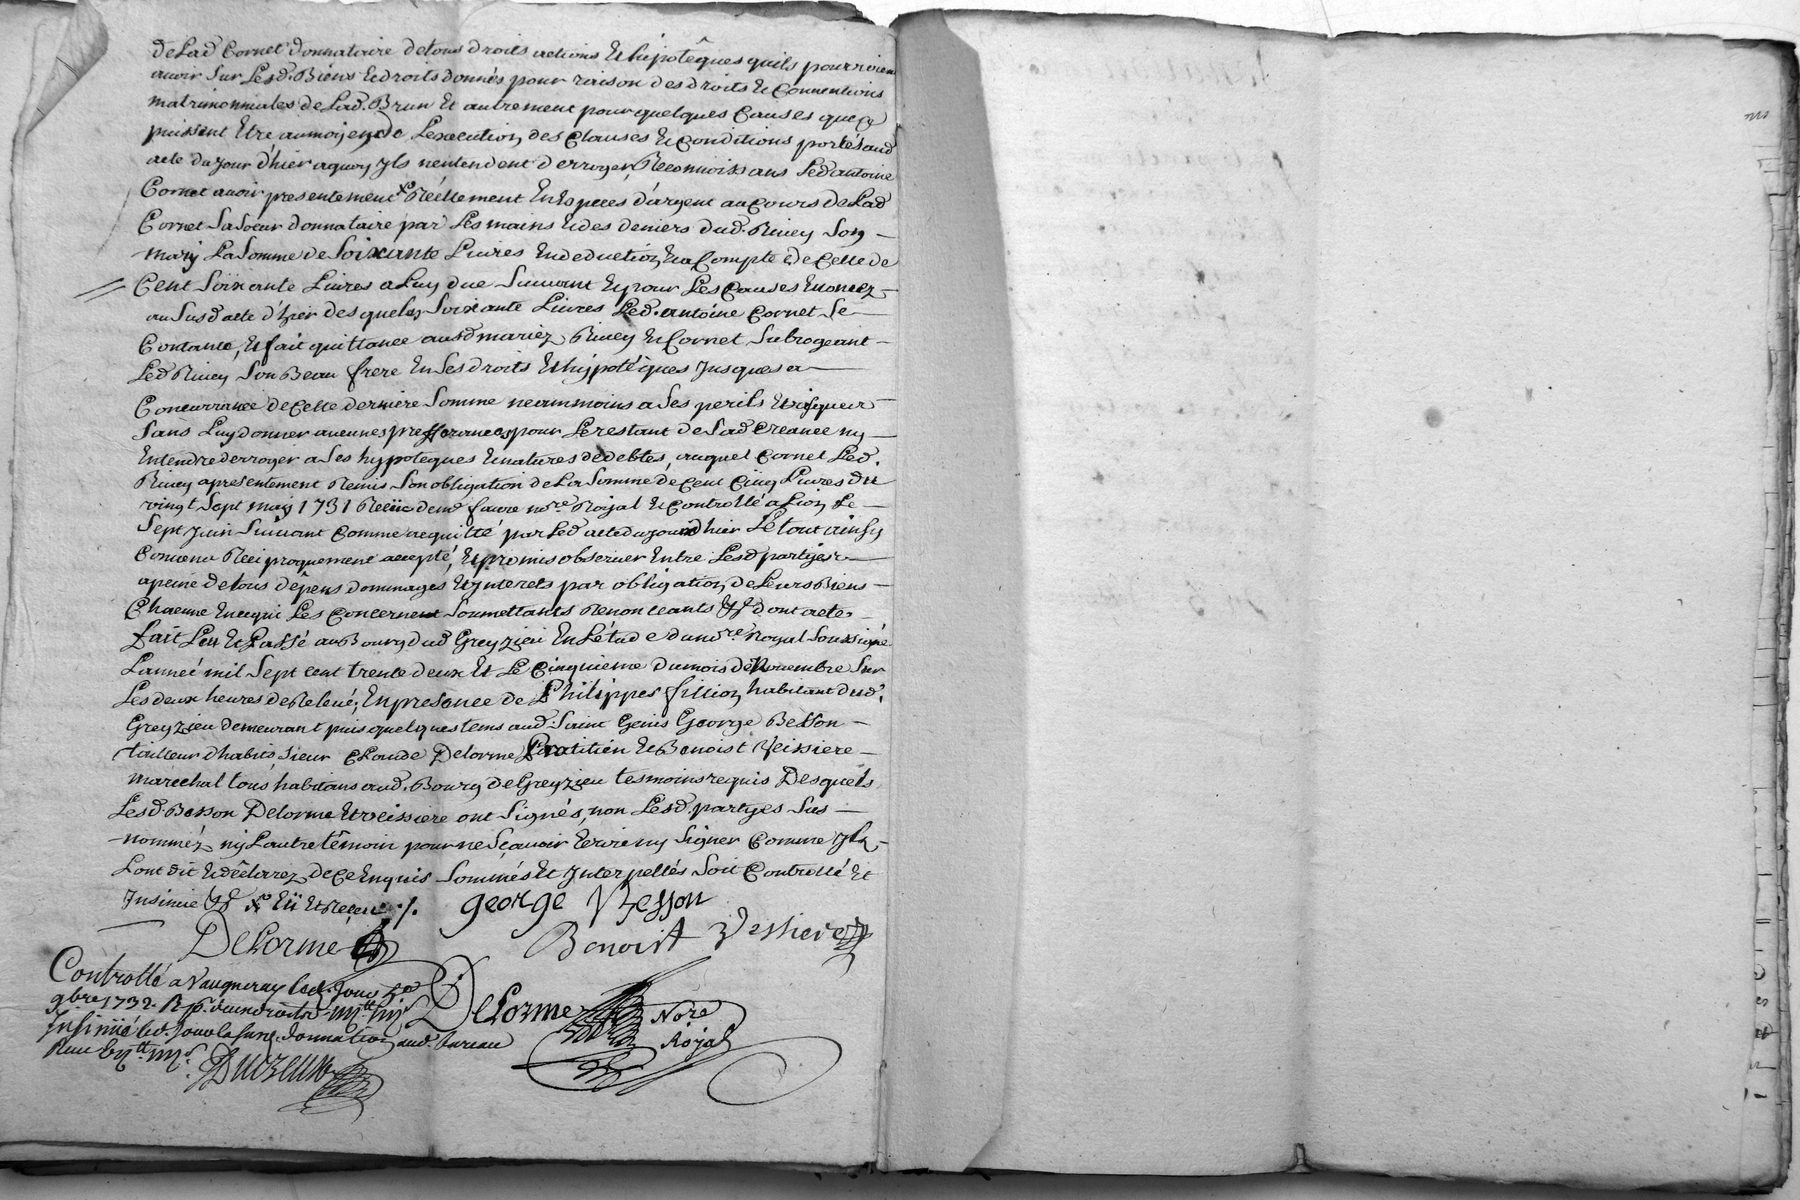 de Lad Cornet donnataire de tous droits actions Et hipotêques quils pourroient
avoir Sur Lesd. Biens Et droits donnés pour raison des droits Et Conventions
matrimonniales de Lad. Brun Et autrement pour quelques Causes que ce
puissent Etre au moyen de L'execution des Clauses Et Conditions portés aud
acte du jour d'hier aquoy yls n'entendent derroger, Reconnoissans Led antoine
Cornet avoir presentement x Réellement En Especes d'argent au Cours de Lad
Cornet Sa Soeur donnataire par Les mains Et des deniers dud. Rivey Son
mary La Somme de Soixante Livres En deduction Et a Compte de Celle de
Cent Soixante Livres a Luy due Suivant Et pour Les Causes Enoncez
au Susd acte d'hier desquels Soixante Livres Led. antoine Cornet Se
Contante, Et fait quittance ausd mariez Rivey Et Cornet Subrogeant
Led Rivey Son Beau frere En Ses droits Et hypotéques Jusques a
Concurrance de Cette derniere Somme neanmoins a Ses perils Et risques
Sans Luy donner aucunes prefferances pour Le restant de Sad Creance ny
Entendre derroger a Ses hypoteques Et natures de debtes, auquel Cornet Led.
Rivey a presentement Remis Son obligation de La Somme de Cent Cinq Livres du
vingt Sept may 1731 Reçüe de me favre nore Royal Et Controllé a Lion Le
Sept Juin Suivant Comme acquitté par Led acte du jour d'hier Le tout ainsy
Convenu Reciproquement accepté, Et promis observer Entre Lesd partyes
a peine de tous dêpens dommages Et ynterets par obligation de Leurs Biens
Chacune En ce qui Les Concernent Soumettants Renonceants &c dont acte
fait Leu Et Passé au Bourg dud Greyzieu En L'étude du nore Royal Soussigné
L'année mil Sept cent trente deux Et Le Cinquieme du mois de Novembre Sur
Les deux heures de Relevé, En presence de Philippes fillion habitant dud.
Greyzieu demeurant puis quelques tems aud. Saint Genis George Besson
tailleur d'habits, Sieur Claude Delorme Pratitien Et Benoist Veissiere
marechal tous habitans aud. Bourg de Greyzieu tesmoins requis Desquels
Lesd Besson Delorme Et veissiere ont Signés, non Lesd. partyes Sus
nommés, ny L'autre têmoin pour ne Sçavoir Ecrire ny Signer Comme yls
L'ont dit Et dêclarez, de Ce Enquis Sommés Et Interpellés Soit Controllé Et
Insinué &c x Eü Et Reçeu ./.
george Besson
Delorme
Benoist Vessiere
Controllé a Vaugneray led. Jour 5e
9bre 1732. R p. deux droits
Insinué led. Jour la susd. donnation aud. bureau
Reçu
Delorme Nore
Royal
Duizeux